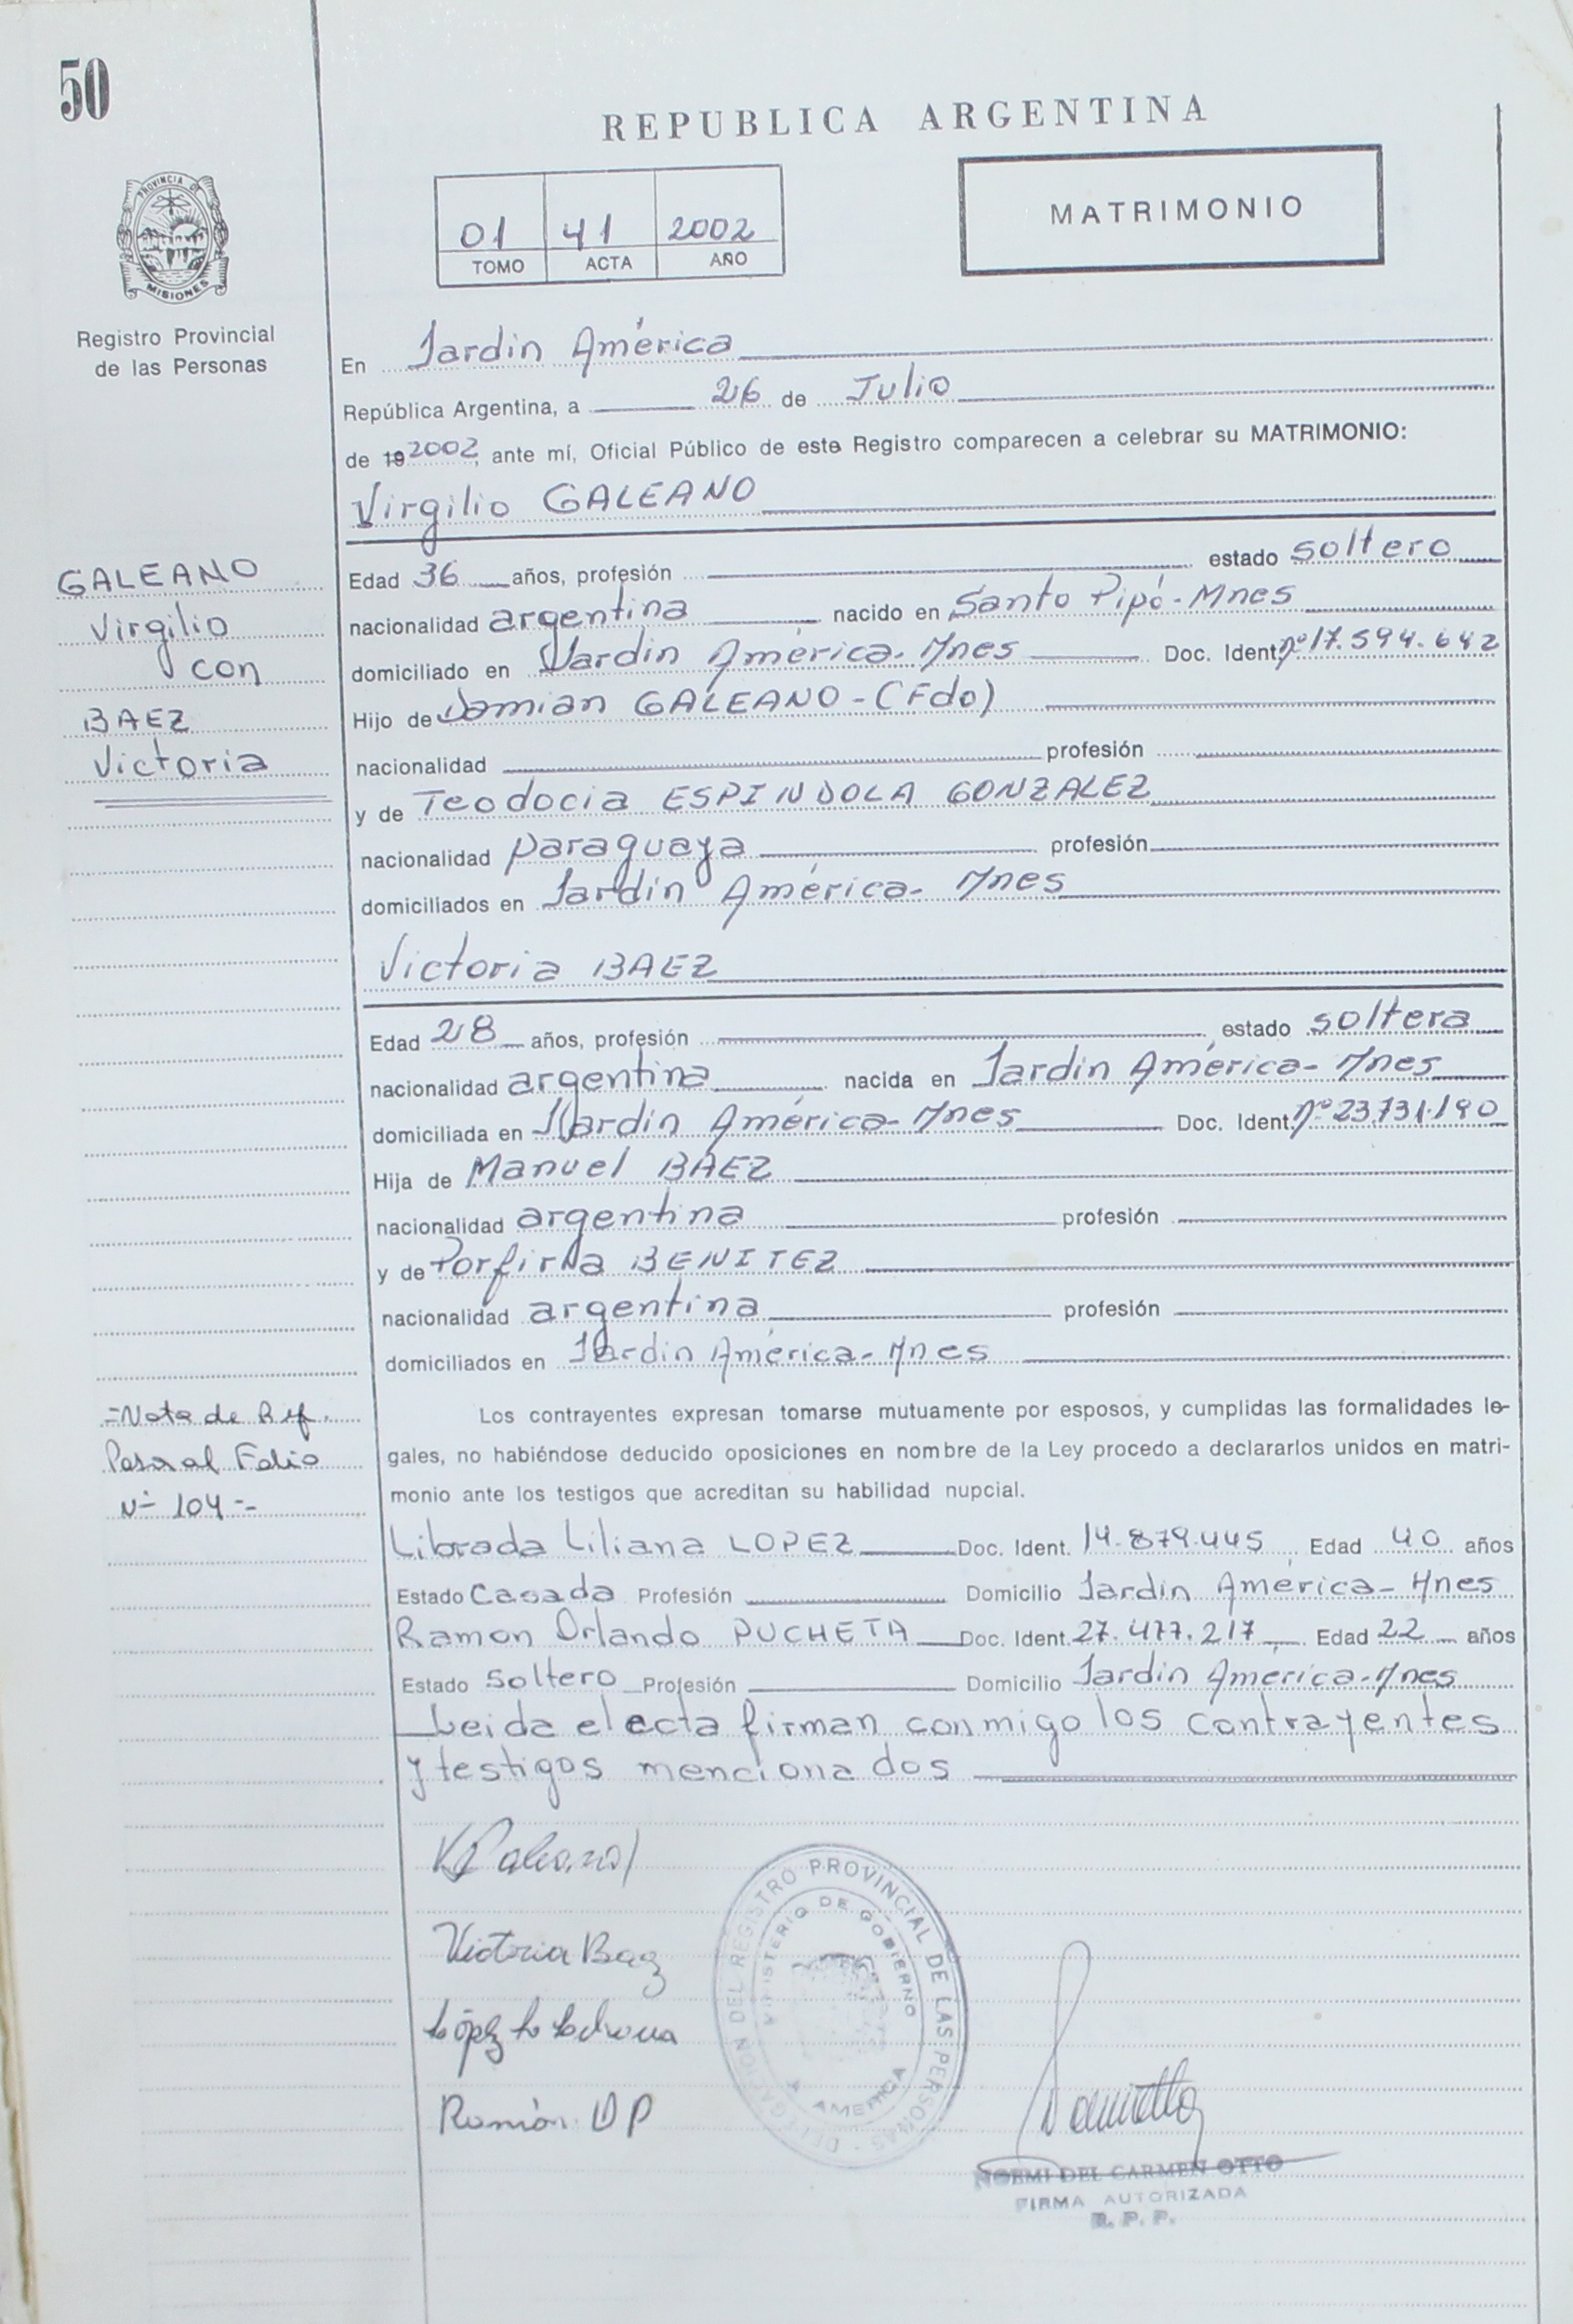 50
REPUBLICA ARGENTINA
01 41 2002
TOMO ACTA AÑO
MATRIMONIO
PROVINCIA DE
MISIONES
Registro Provincial
de las Personas
En Jardin América
República Argentina, a 26 de Julio
de 19 2002, ante mí, Oficial Público de este Registro comparecen a celebrar su MATRIMONIO:
Virgilio GALEANO
GALEANO
Virgilio
con
BAEZ
Victoria
Edad 36 años, profesión estado soltero
nacionalidad argentina nacido en Santo Pipó-Mnes
domiciliado en Jardin América-Mnes Doc. Ident. nº 17.594.642
Hijo de Damian GALEANO-(Fdo)
nacionalidad profesión
y de Teodocia ESPINDOLA GONZALEZ
nacionalidad paraguaya profesión
domiciliados en Jardin América-Mnes
Victoria BAEZ
Edad 28 años, profesión estado soltera
nacionalidad argentina nacida en Jardin América-Mnes
domiciliada en Jardin América-Mnes Doc. Ident. nº 23.731.190
Hija de Manuel BAEZ
nacionalidad argentina profesión
y de Porfiria BENITEZ
nacionalidad argentina profesión
domiciliados en Jardin América-Mnes
=Nota de Ref.
Pasa al Folio
Nº 104--
Los contrayentes expresan tomarse mutuamente por esposos, y cumplidas las formalidades le-
gales, no habiéndose deducido oposiciones en nombre de la Ley procedo a declararlos unidos en matri-
monio ante los testigos que acreditan su habilidad nupcial.
Librada Liliana LOPEZ Doc. Ident. 14.879.445 Edad 40 años
Estado Casada Profesión Domicilio Jardin América-Mnes
Ramon Orlando PUCHETA Doc. Ident. 27.477.217 Edad 22 años
Estado soltero Profesión Domicilio Jardin América-Mnes
Leida el acta firman conmigo los contrayentes
y testigos mencionados
V Galeano
Victoria Baez
López
Ramón O P
DELEGACION DEL REGISTRO PROVINCIAL DE LAS PERSONAS
MINISTERIO DE GOBIERNO
AMERICA
NOEMI DEL CARMEN OTTO
FIRMA AUTORIZADA
R. P. P.